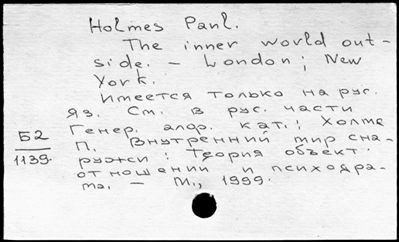 Holmes Paul.
The inner world out-
side. – London; New
York.
Имеется только на рус.
яз. См. в рус. части
Генер. алф. кат.: Холмс
П. Внутренний мир сна-
ружи: Теория объект.
отношений и психодра-
ма. – М., 1999.
Б2
1139.